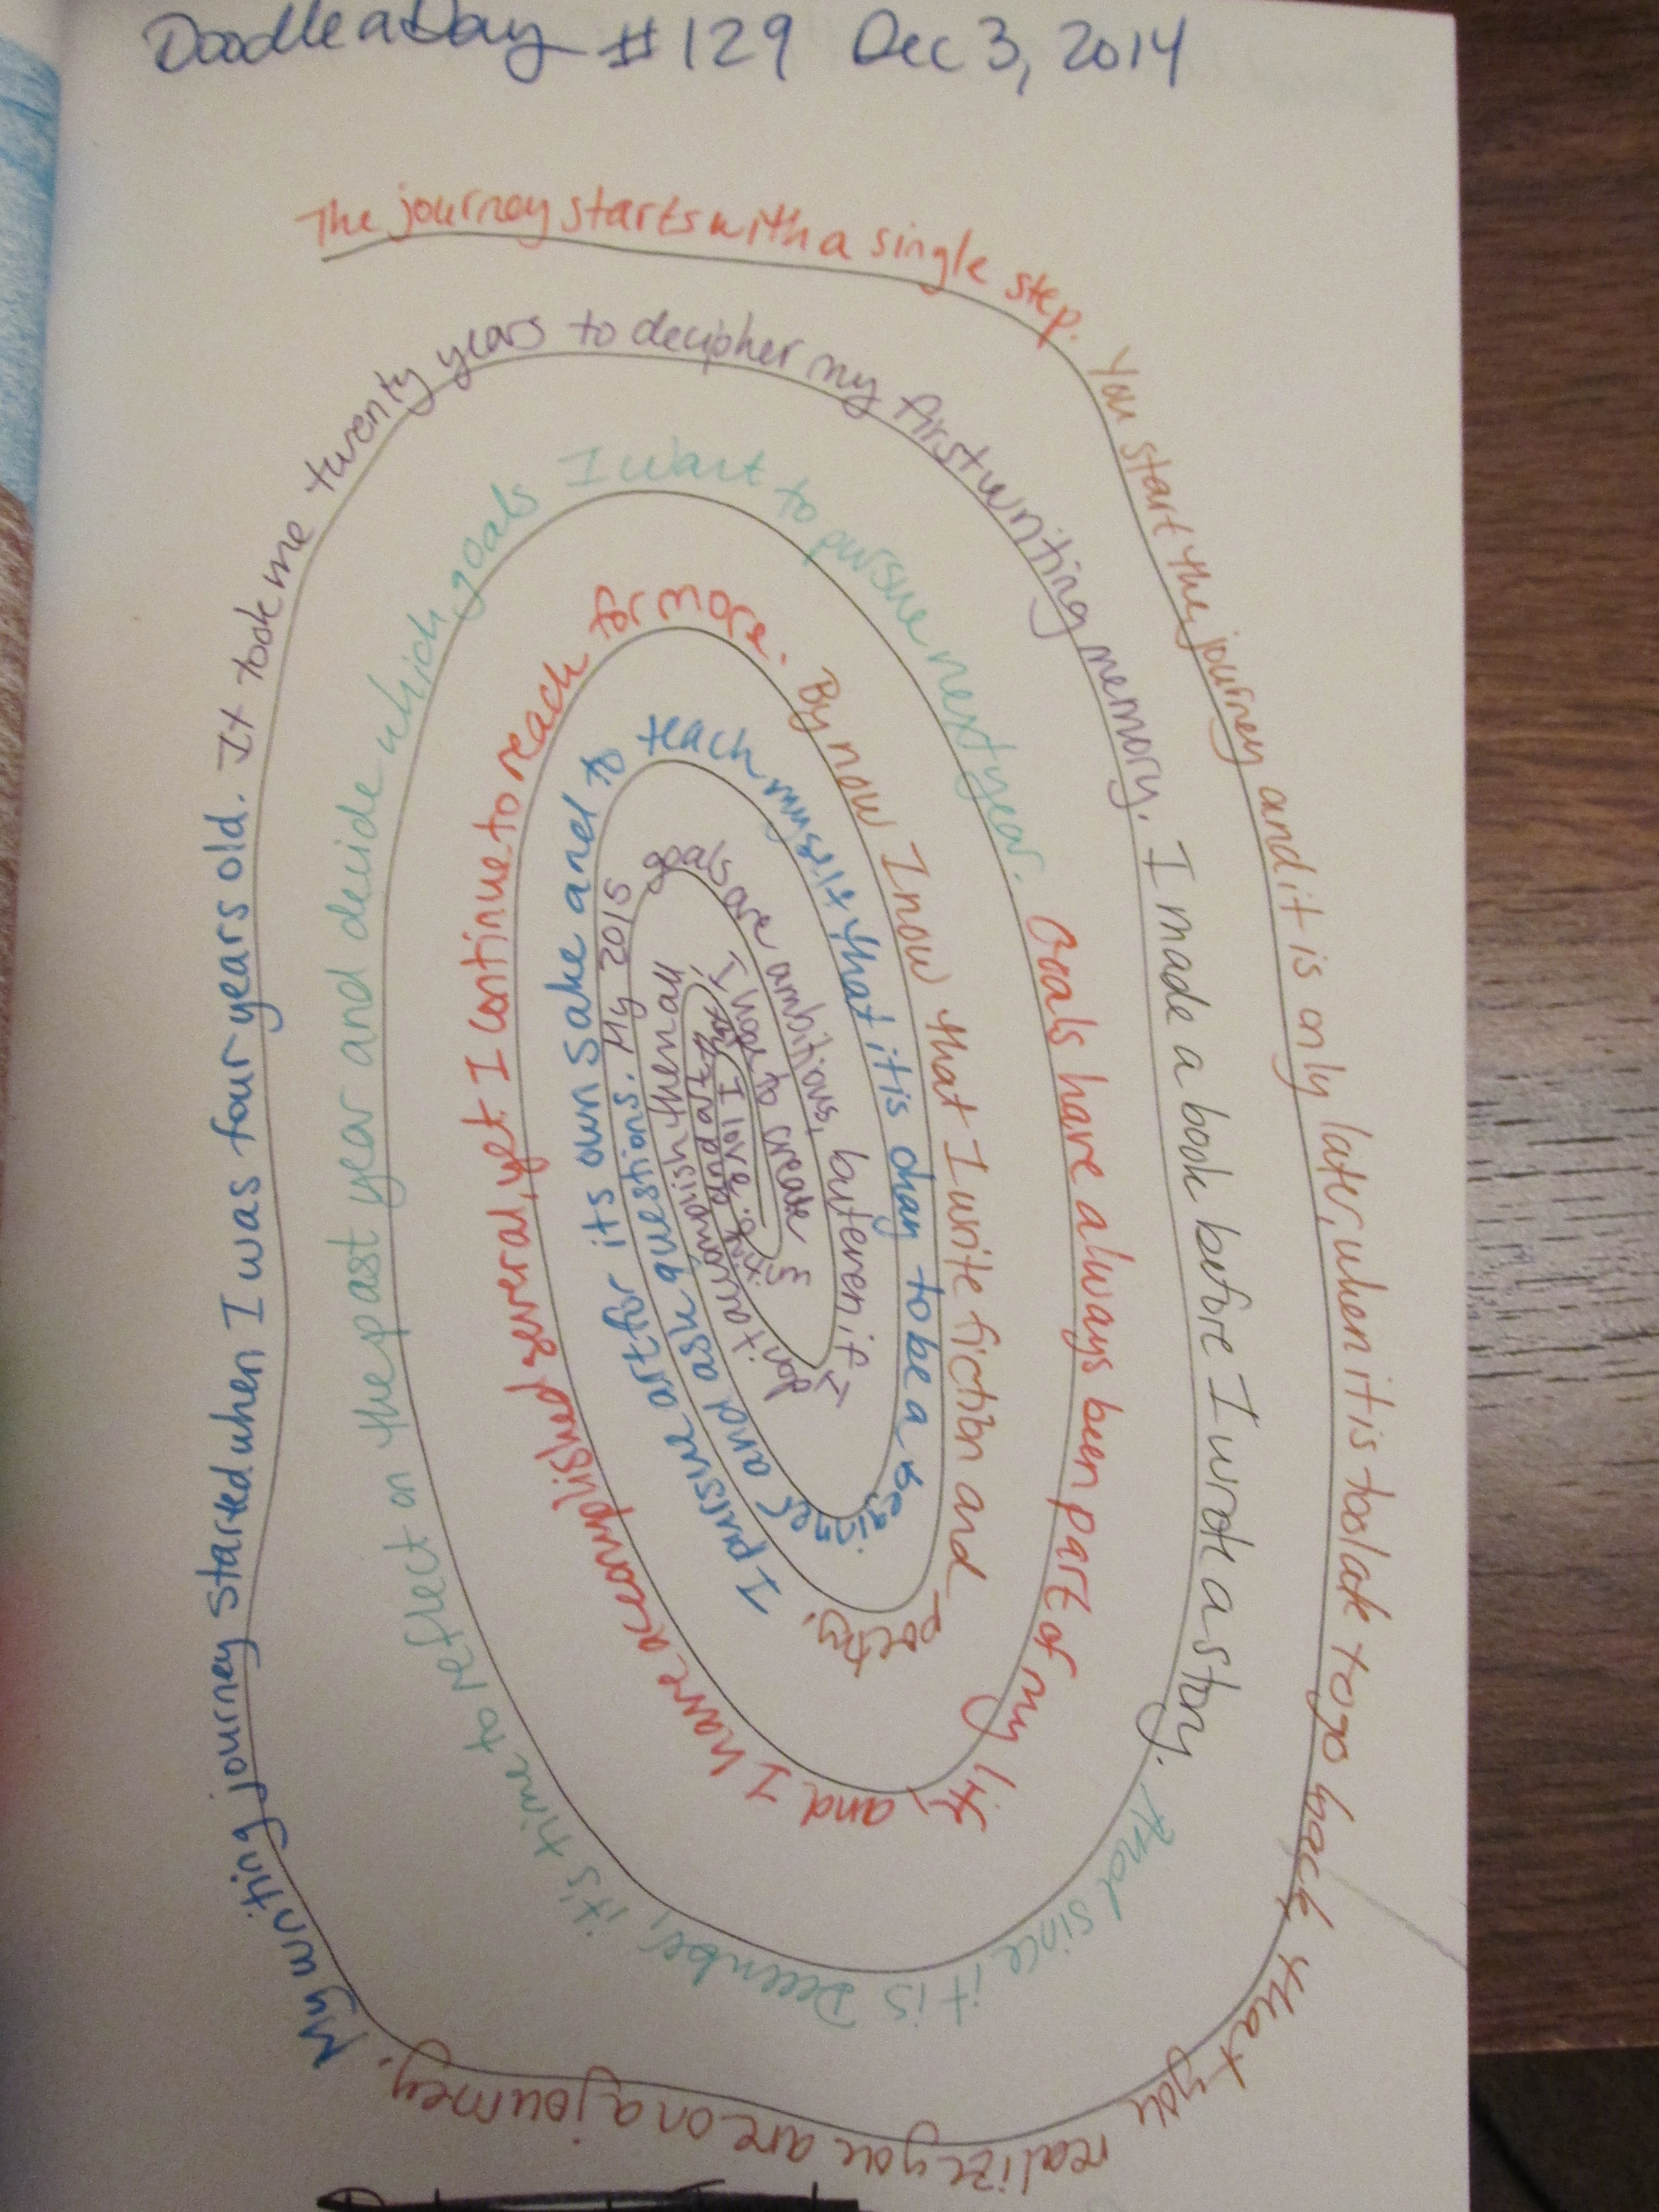 Doodle a Day #129 Dec 3, 2014
The journey starts with a single step.
You start the journey and it is only later, when it is too late to go back that you realize you are on a journey.
My writing journey started when I was four years old.
It took me twenty years to decipher my first writing memory.
I made a book before I wrote a story.
And since it is December, it's time to reflect on the past year and decide which goals I want to pursue next year.
Goals have always been part of my life, and I have accomplished several, yet I continue to reach for more.
By now I now that I write fiction and poetry.
I pursue art for its own sake and to teach myself that it is okay to be a beginner and ask questions.
My 2015 goals are ambitious, but even if I don't accomplish them all, I create and art that I love.